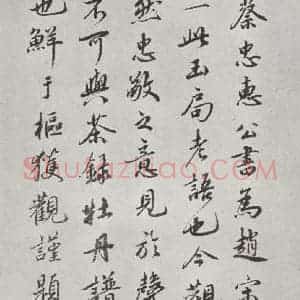 蔡忠惠公書為趙宋
一此玉局老語也今觀
然忠敬之意見於聲
不可與茶錄牡丹譜
也鮮于樞獲觀謹題